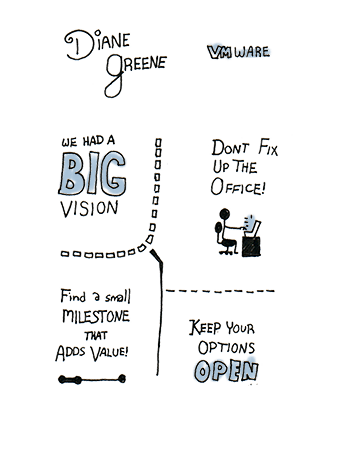 Diane
Greene
VMWARE
WE HAD A
BIG
VISION
DONT FIX
UP THE
OFFICE!
Find a small
MILESTONE
THAT
ADDS VALUE!
KEEP YOUR
OPTIONS
OPEN